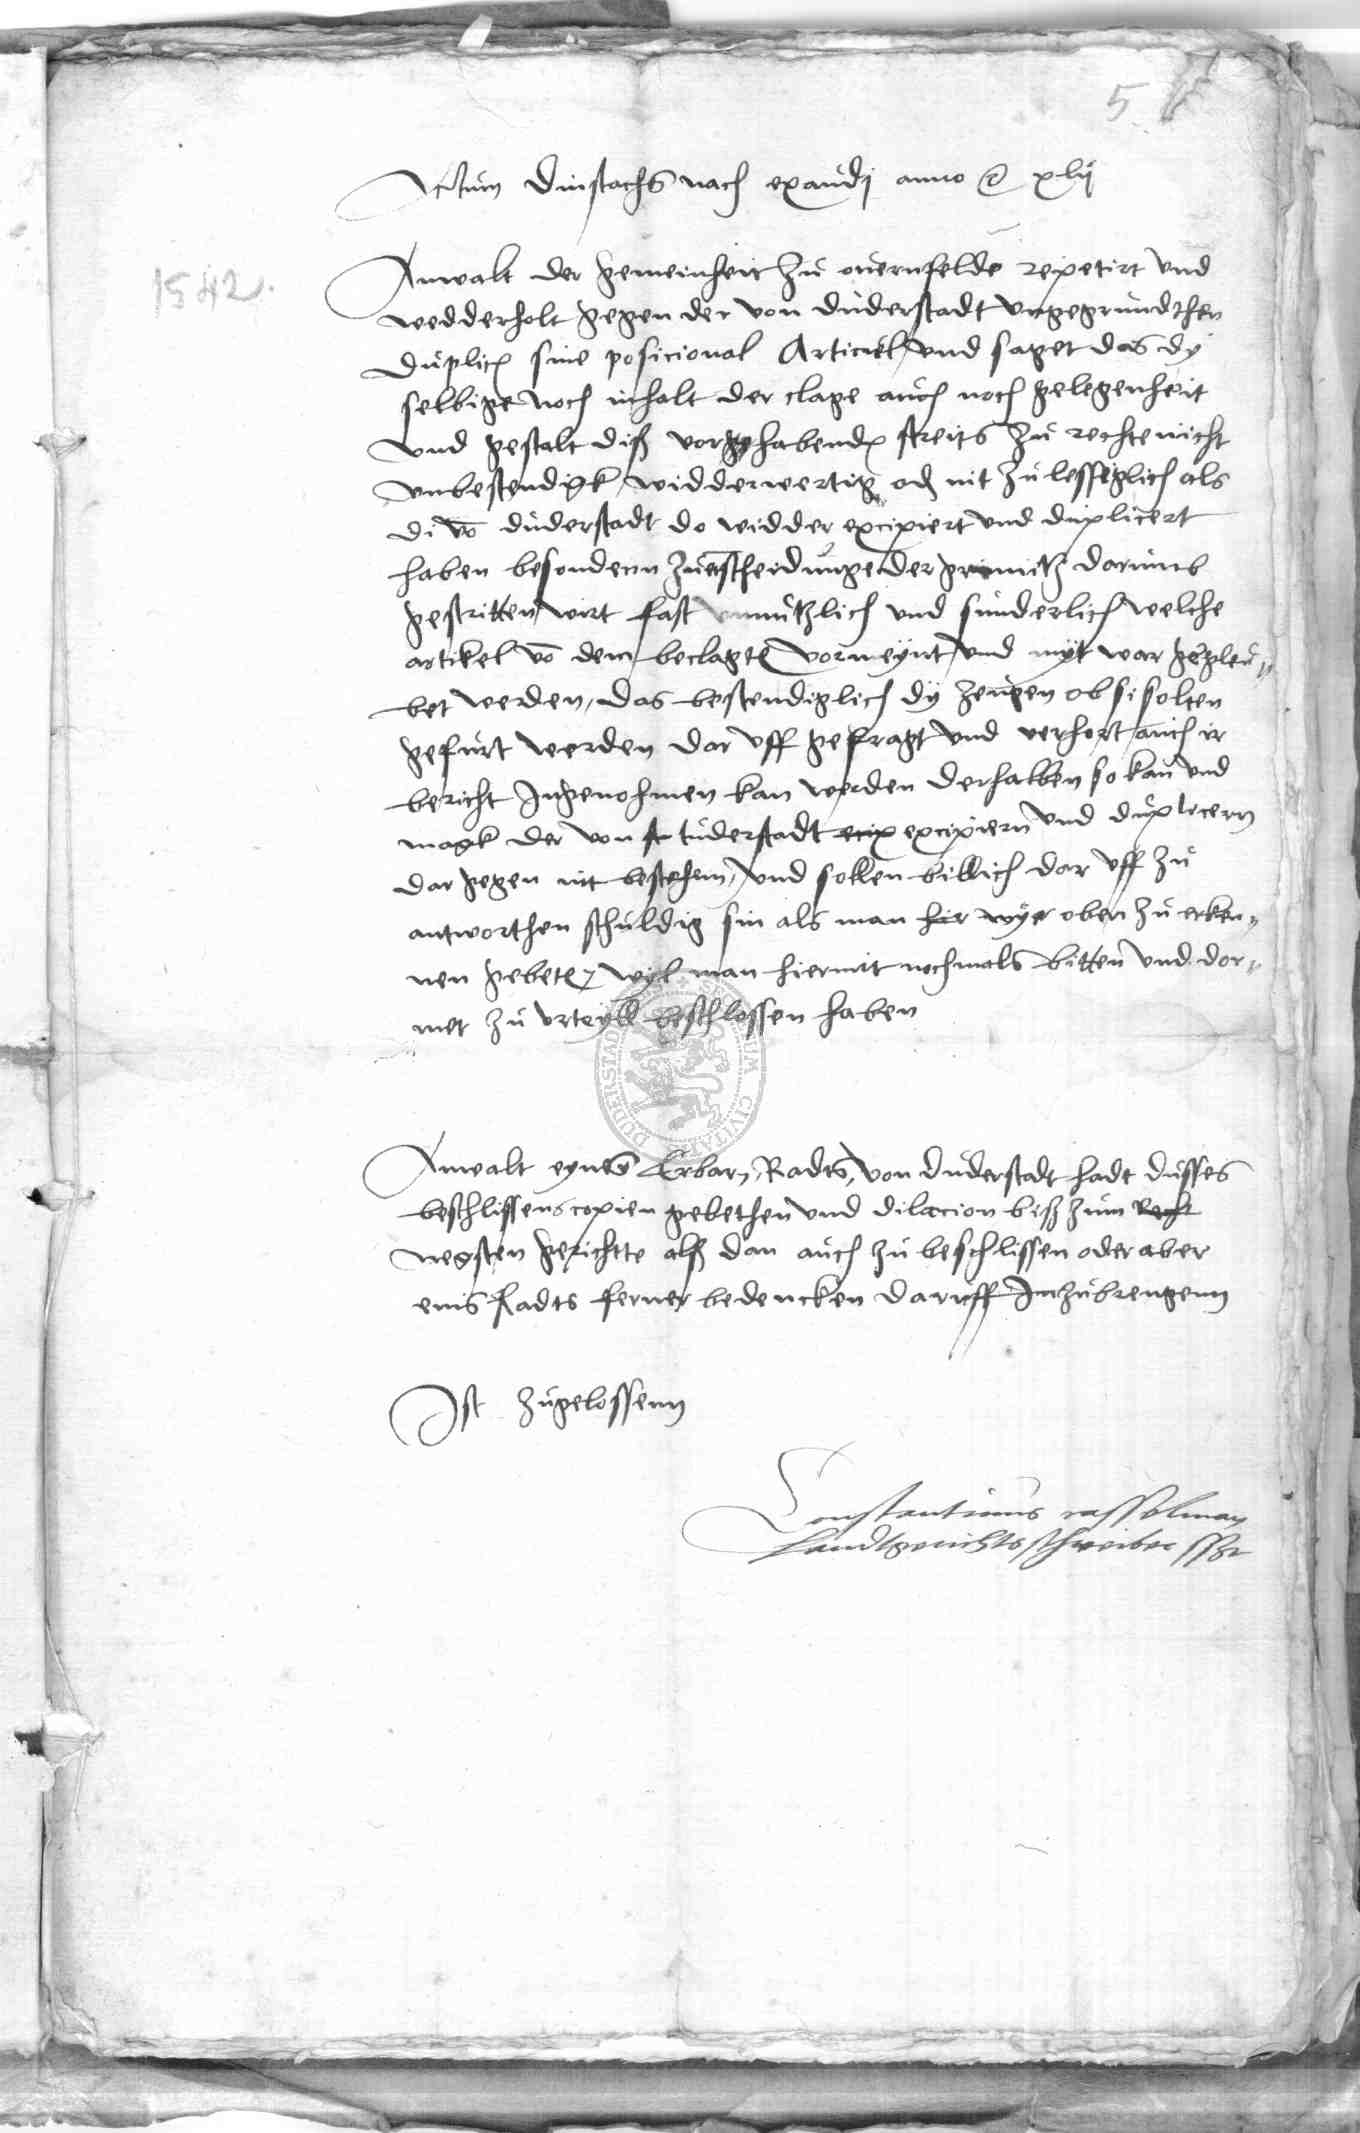 5
Actum dinstachs nach exaudj anno &c xlij
1542.
Anwalt der gemeinheit zu ouernfelde repetirt vnd
wedderholt gegen der von duderstadt vngegrundthen
duplic sine posicional Artickel vnd saget das dy
selbige noch inhalt der clage auch noch gelegenheit
vnd gestalt diß vorhabend streits zu rechte nicht
vnbestendigk widderwertig od nit zulesseglich als
di vo duderstadt do widder excipiert vnd duplicert
haben besondernn zu entscheidunge der darumb
gestritten wirt fast nutzlich vnd sunderlich welche
artikel vo dem beclagte vorneynt vnd nyt war gegleu-
bet werden, das bestendiglich dy zeugen ob si solten
gefurt werden dar vff gefragt vnd verhort auch ir
bericht Ingenohmen kan werden derhalben so kan vnd
magk der von tuderstadt excipiern vnd duplicern
dar gegen nit bestehenn, vnd sollen billich dar vff zu
antworthen schuldig sin als man hir oben zu erken-
nen gebete, wyl man hiermit nochmals bitten vnd dor-
met zu vrteyll beschlossen haben
DUDERSTAD CIVITATIS
Anwalt eynes Erbarn Radts von duderstadt hadt dusses
beschlissens copien gebethen vnd dilacion biß zum Recht
negsten gerichtte alß dan auch zu beschlissen oder aber
eins Radts ferner bedencken daruff Inzubrengenn
Ist zugelossenn
Constantinus rasselman
Landtgerichtsschreiber sßt